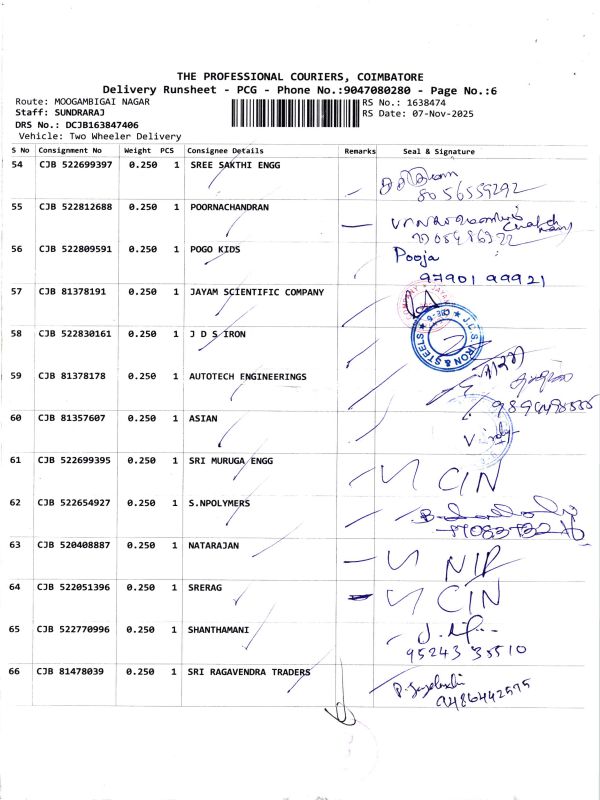 THE PROFESSIONAL COURIERS, COIMBATORE
Delivery Runsheet - PCG - Phone No.:9047080280 - Page No.:6
Route: MOOGAMBIGAI NAGAR
RS No.: 1638474
Staff: SUNDRARAJ
RS Date: 07-Nov-2025
DRS No.: DCJB163847406
Vehicle: Two Wheeler Delivery
S No Consignment No Weight PCS Consignee Details Remarks Seal & Signature
54 CJB 522699397 0.250 1 SREE SAKTHI ENGG
8056559292
55 CJB 522812688 0.250 1 POORNACHANDRAN
56 CJB 522809591 0.250 1 POGO KIDS Pooja
97901 99921
57 CJB 81378191 0.250 1 JAYAM SCIENTIFIC COMPANY
58 CJB 522830161 0.250 1 J D S IRON
IRON & STEELS
59 CJB 81378178 0.250 1 AUTOTECH ENGINEERINGS
60 CJB 81357607 0.250 1 ASIAN
61 CJB 522699395 0.250 1 SRI MURUGA ENGG
CIN
62 CJB 522654927 0.250 1 S.NPOLYMERS
63 CJB 520408887 0.250 1 NATARAJAN
64 CJB 522051396 0.250 1 SRERAG
CIN
65 CJB 522770996 0.250 1 SHANTHAMANI
95243 35510
66 CJB 81478039 0.250 1 SRI RAGAVENDRA TRADERS
9486442575